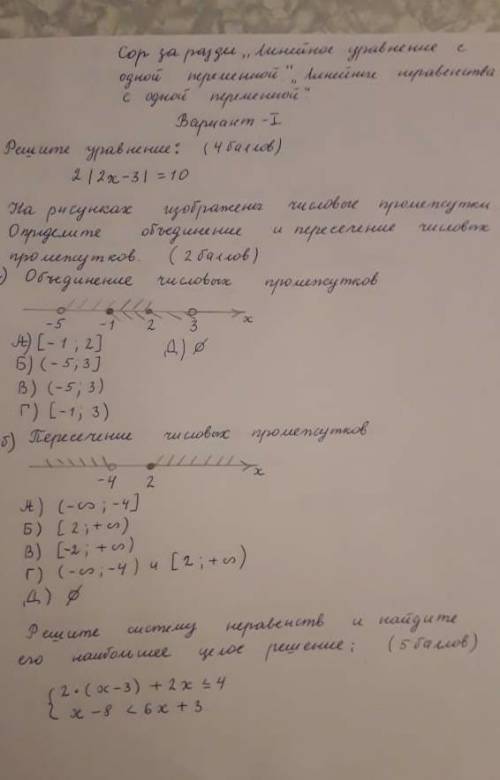 Сор за разди „Линейное уравнение с
одной переменной", „Линейные неравенства
с одной переменной"
Вариант - I
Решите уравнение: (4 баллов)
2|2x-3| = 10
На рисунках изображены числовые промежутки.
Определите объединение и пересечение числовых
промежутков. (2 баллов)
) Объединение числовых промежутков
-5 -1 2 3 x
А) [-1; 2] Д) ∅
Б) (-5; 3]
В) (-5; 3)
Г) [-1; 3)
б) Пересечение числовых промежутков
-4 2 x
А) (-∞; -4]
Б) [2; +∞)
В) [-2; +∞)
Г) (-∞; -4) и [2; +∞)
Д) ∅
Решите систему неравенств и найдите
его наибольшее целое решение; (5 баллов)
{ 2·(x-3) + 2x ≤ 4
x - 8 < 6x + 3